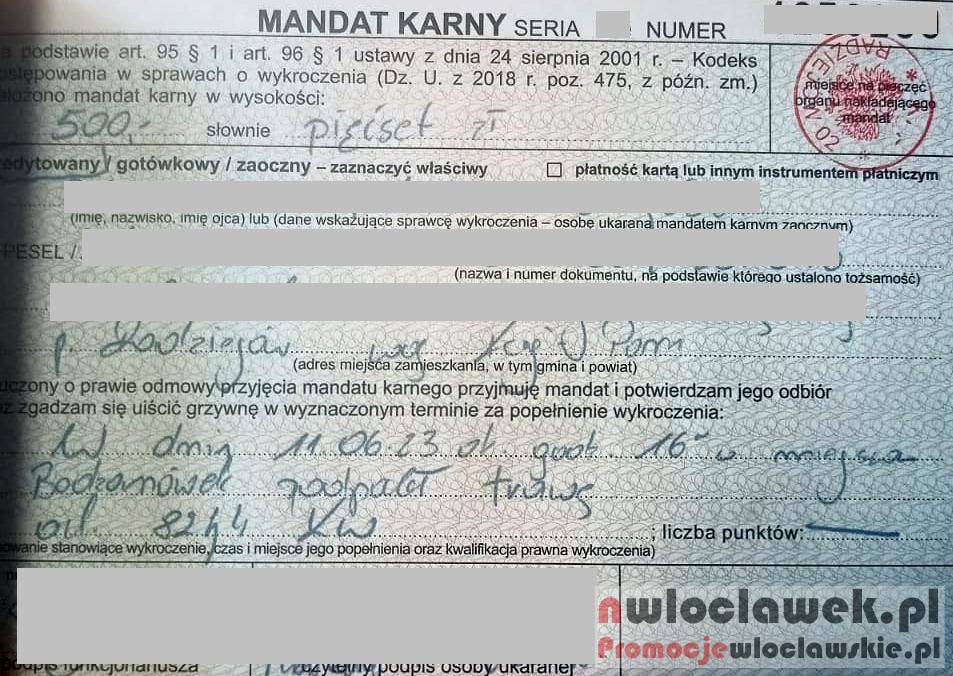 MANDAT KARNY SERIA NUMER
podstawie art. 95 § 1 i art. 96 § 1 ustawy z dnia 24 sierpnia 2001 r. – Kodeks
ostępowania w sprawach o wykroczenia (Dz. U. z 2018 r. poz. 475, z późn. zm.)
ałożono mandat karny w wysokości:
500, słownie pięćset zł
miejsce na pieczęć
organu nakładającego
mandat
RADZIEJÓW 02
edytowany / gotówkowy / zaoczny – zaznaczyć właściwy
płatność kartą lub innym instrumentem płatniczym
(imię, nazwisko, imię ojca) lub (dane wskazujące sprawcę wykroczenia – osobę ukaraną mandatem karnym zaocznym)
PESEL /
(nazwa i numer dokumentu, na podstawie którego ustalono tożsamość)
p. Radziejów woj. Kuj Pom
(adres miejsca zamieszkania, w tym gmina i powiat)
uczony o prawie odmowy przyjęcia mandatu karnego przyjmuję mandat i potwierdzam jego odbiór
z zgadzam się uiścić grzywnę w wyznaczonym terminie za popełnienie wykroczenia:
W dniu 11.06.23 ok godz. 16 w miejsca
Bodzanówek podpalał trawę
art. 82 § 4 KW ; liczba punktów:
owanie stanowiące wykroczenie, czas i miejsce jego popełnienia oraz kwalifikacja prawna wykroczenia)
nwloclawek.pl
Promocjewloclawskie.pl
podpis funkcjonariusza
czytelny podpis osoby ukaranej